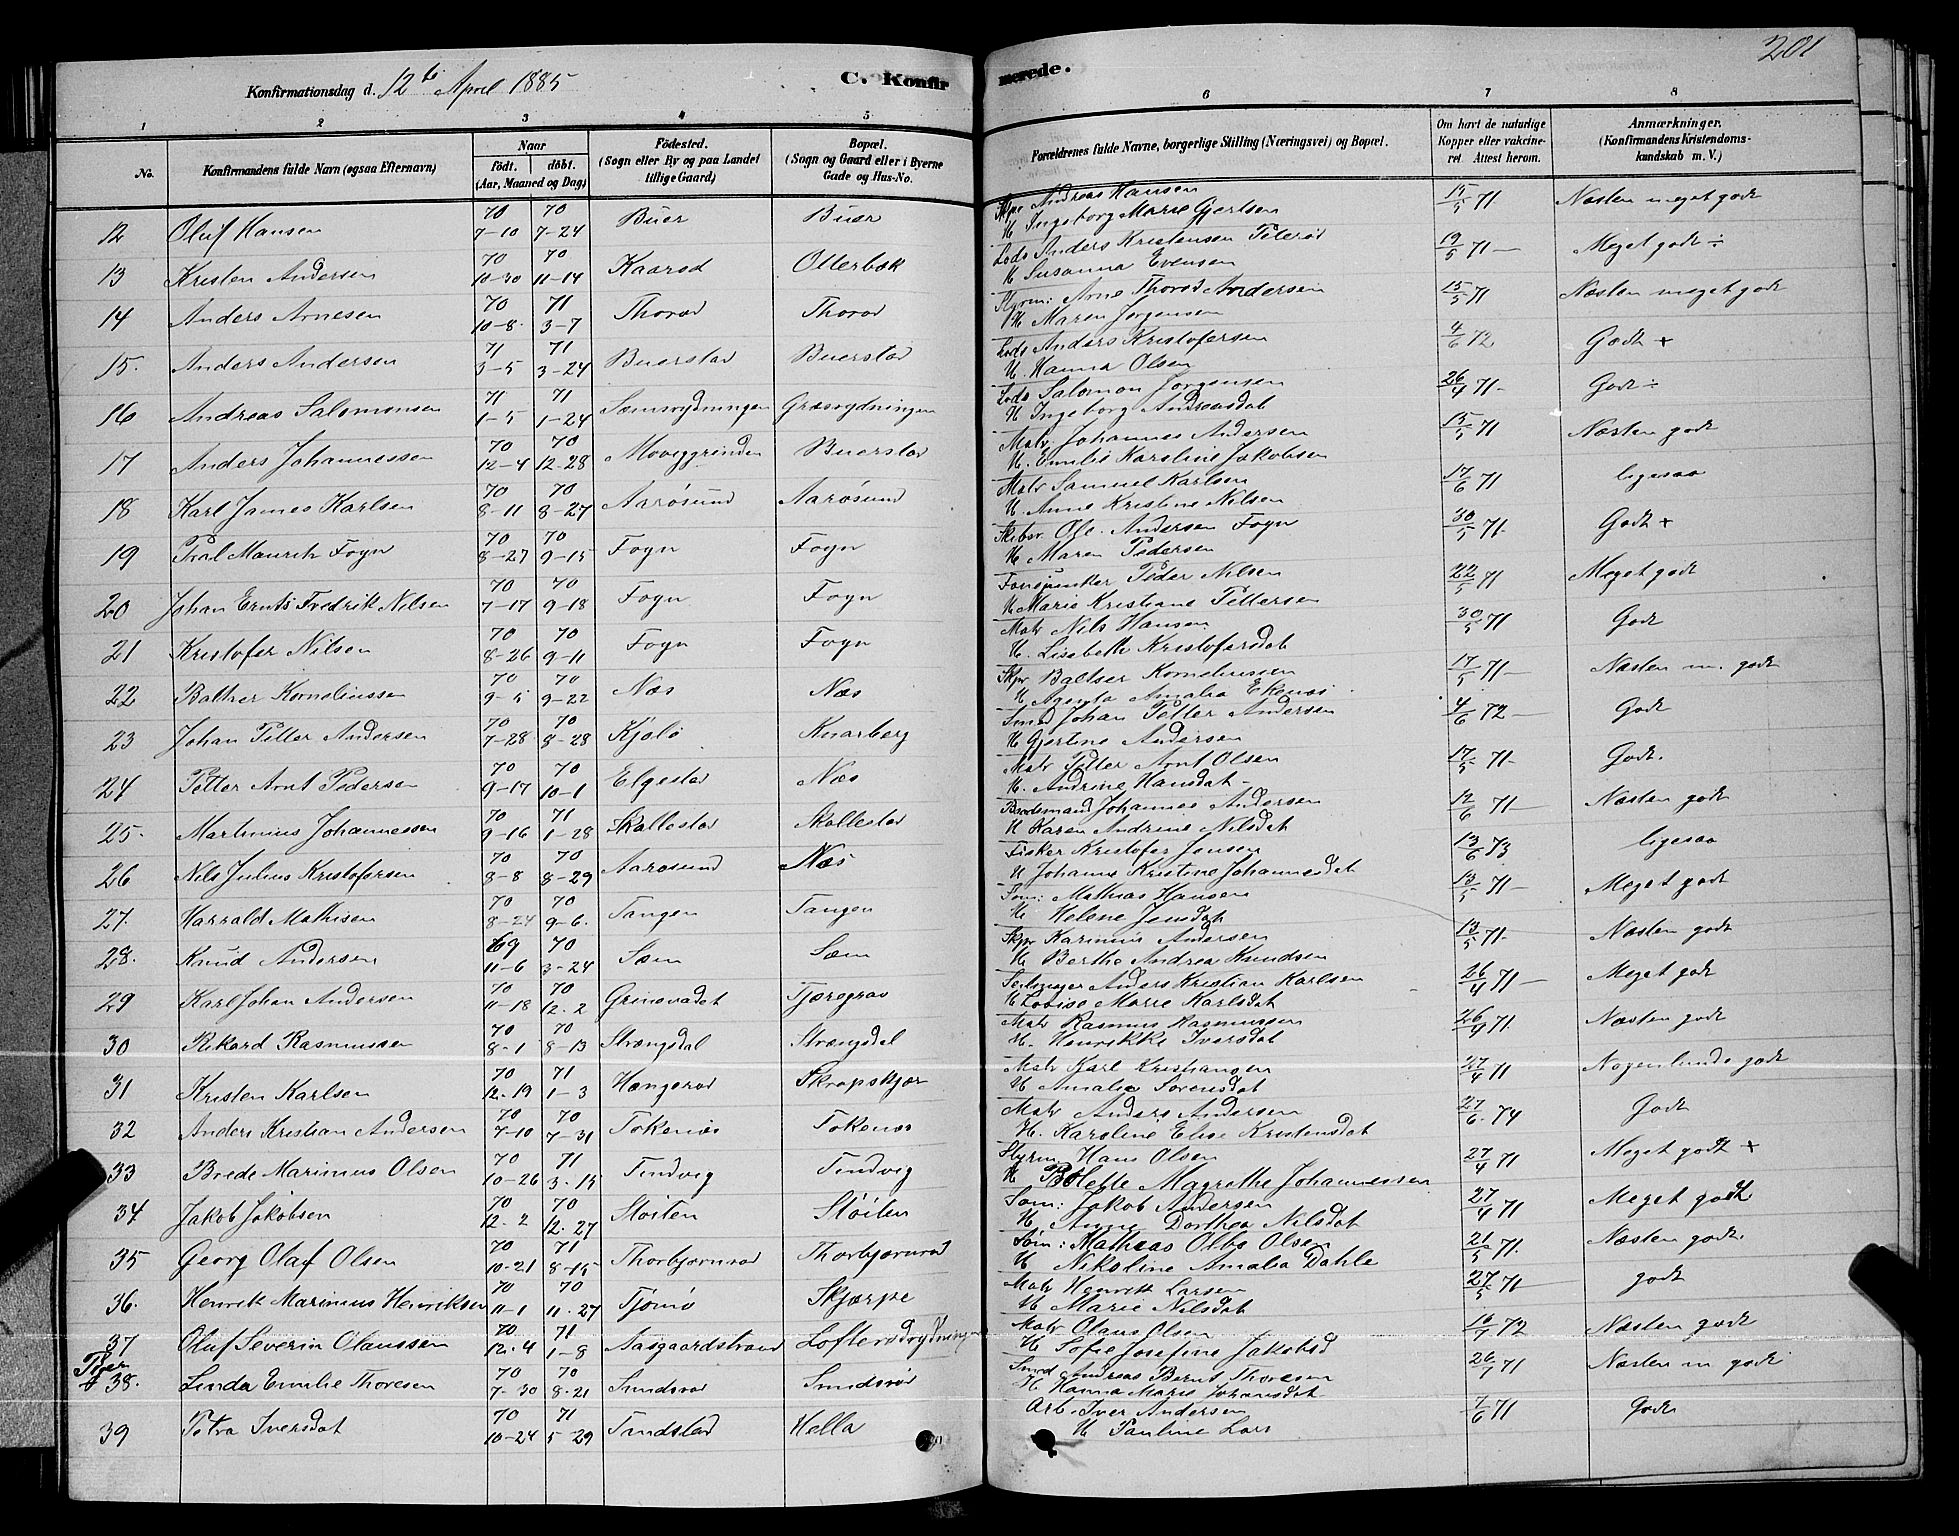 201
Konfirmationsdag d. 12te April 1885 C. Konfirmerede.
1 2 3 4 5 6 7 8
No. Konfirmandens fulde Navn (ogsaa Efternavn) Naar födt. döbt. (Aar, Maaned og Dag) Födested. (Sogn eller By og paa Landet tillige Gaard) Bopæl. (Sogn og Gaard eller i Byerne Gade og Hus-No. Forældrenes fulde Navne, borgerlige Stilling (Næringsvei) og Bopæl. Om havt de naturlige Kopper eller vakcineret. Attest herom. Anmærkninger. (Konfirmandens Kristendomskundskab m. V.)
12 Oluf Hansen 70 7-10 70 7-24 Buer Buer Skpr Andreas Hansen 15/5 71 Næsten meget godt
H Ingeborg Marie Gjertsen
13 Kristen Andersen 70 10-30 70 11-14 Kaarød Otterbæk Lods Anders Kristensen Peterød 19/5 71 — Meget godt ÷
H Susanna Evensen
14 Anders Arnesen 70 10-8 71 3-7 Thorød Thorød Styrm: Arne Thorød Andersen 15/5 71 Næsten meget godt
H Maren Jørgensen
15. Anders Andersen 71 3-5 71 3-24 Buerstad Buerstad Lods Anders Kristofersen 4/6 72 Godt +
H. Hanna Olsen
16 Andreas Salomonsen 71 1-5 71 1-24 Sømsrydningen Græsrydningen Lods Salomon Jørgensen 26/4 71- Godt ÷
H Ingeborg Andreasdat
17 Anders Johannessen 70 12-4 70 12-28 Moveggrinden Buerstad Matr. Johannes Andersen 15/5 71 Næsten godt
H. Emilie Karoline Jakobsen
18 Karl James Karlsen 70 8-11 70 8-27 Aarøsund Aarøsund Matr Samuel Karlsen 17/6 71 ligesaa
H. Anne Kristine Nilsen
19 Mauritz Fogn 70 8-27 70 9-15 Fogn Fogn Skibsr. Ole Andersen Fogn 30/5 71- Godt +
H Maren Pedersen
20 Johan Ernts Fredrik Nilsen 70 7-17 70 9-18 Fogn Fogn Peder Nilsen 22/5 71 Meget godt
H Marie Kristiane Pettersen
21 Kristofer Nilsen 70 8-26 70 9-11 Fogn Fogn Matr Nils Hansen 30/5 71 Godt
H. Lisabeth Kristofersdat
22 Baltser Korneliussen 70 9-5 70 9-22 Næs Næs Skpr Baltser Korneliussen 17/5 71 — Næsten m. godt
H Agenta Amalia Ekenæs
23 Johan Petter Andersen 70 7-28 70 8-28 Kjølø Knarberg Smed Johan Petter Andersen 4/6 72 — Godt
H Gjertine Andersen
24 Petter Arnt Pedersen 70 9-17 70 10-1 Elgestad Næs Matr Petter Arnt Olsen 17/5 71- Godt.
H. Andrine Hansdat
25. Martinius Johannessen 70 9-16 71 1-28 Skallestad Skallestad Johannes Andersen 12/6 71 — Næsten godt
H Karen Andrine Nilsdat
26 Nils Julius Kristofersen 70 8-8 70 8-29 Aarøsund Næs Fisker Kristofer Jensen 13/6 73 ligesaa
H Johanne Kristine Johannesdat
27. Harrald Mathisen 70 8-24 70 9-6. Tangen Tangen Søm: Mathias Hansen 13/5 71 — Meget godt
H Helene Jensdat
28. Knud Andersen 69 11-6 70 3-24 Søm Søm Skpr Karinius Andersen 13/5 71- Næsten godt
H Berthe Andrea Knudsen
29 Karl Johan Andersen 70 11-18 70 12-2 Grinevadet Tjæregrav Anders Kristian Karlsen 26/4 71 — Meget godt
H Lovise Marie Karlsdat
30 Rikard Rasmussen 70 8-1 70 8-13 Strængsdal Strængsdal Matr Rasmus Rasmussen 26/4 71. Næsten godt
H. Henrikke Iversdat
31 Kristen Karlsen 70 12-19 71 1-3 Hængerød Skrapskjær Matr Karl Kristiansen 27/4 71 Nogenlunde godt
H Amalie Sørensdat
32 Anders Kristian Andersen 70 7-10 70 7-31 Tokenæs Tokenæs Matr Anders Andersen 27/6. 74 Godt
H. Karoline Elise Kristensdat
33 Brede Marinius Olsen 70 10-26 71 3-15 Tindvig Tindvig Styrm Hans Olsen 27/4 71 Meget godt +
H Bolette Magrethe Johannessen
34 Jakob Jakobsen 70 12-2 70 12-27 Støiten Støiten Søm: Jakob Andersen 27/4 71 Meget godt
H. Anne Dorthea Nilsdat
35 Georg Olaf Olsen 70 10-21 71 8-15 Thorbjørnrød Thorbjørnrød Søm: Mathias Olbs Olsen 21/5 71. Næsten godt.
H. Nikoline Amalia Dahle
36. Henrik Marinius Henriksen 70 11-1 70 11-27 Tjømø Skjærpe Matr Henrik Larsen 27/5 71 godt
H Marie Nilsdat
37 Oluf Severin Olaussen 70 12-4 71 1-8 Aasgaardstrand Lofterødrydningen Matr Olaus Olsen 16/7 72 Næsten godt
H Sofie Josefine Jakobsd
Piger
38. Linda Emilie Thoresen 70 7-30 70 8-21 Sundsrød Sundsrød Smed Andreas Bernt Thoresen 26/7 71 Næsten m godt
H. Hanna Marie Johansdat
39 Petra Iversdat 70 10-24 71 5-29 Tandstad Hella Arb. Iver Andersen 7/6 71 Godt
H Pauline Lars